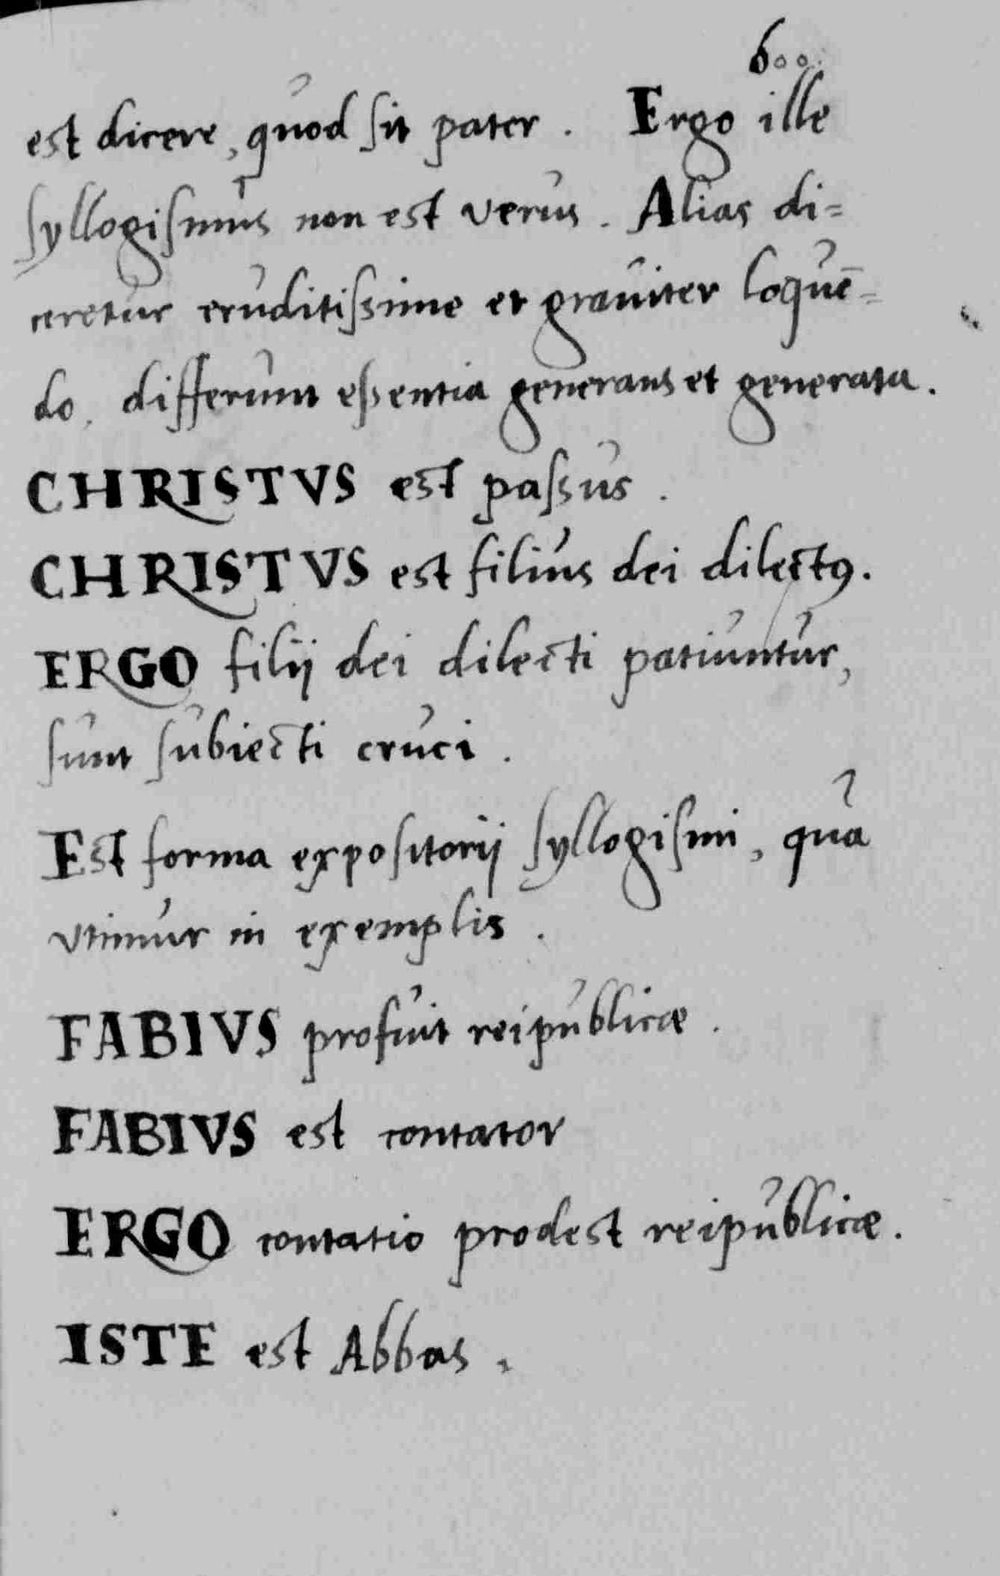 600.
est dicere, quod sit pater. Ergo ille
syllogismus non est verus. Alias di=
ceretur eruditissime et graviter loquē=
do, differunt essentia generans et generata.
CHRISTVS est passus.
CHRISTVS est filius dei dilectꝰ.
ERGO filij dei dilecti patiuntur,
sunt subiecti cruci.
Est forma expositorij syllogismi, qua
vtimur in exemplis.
FABIVS profuit reipublicæ.
FABIVS est contator
ERGO contatio prodest reipublicæ.
ISTE est Abbas.